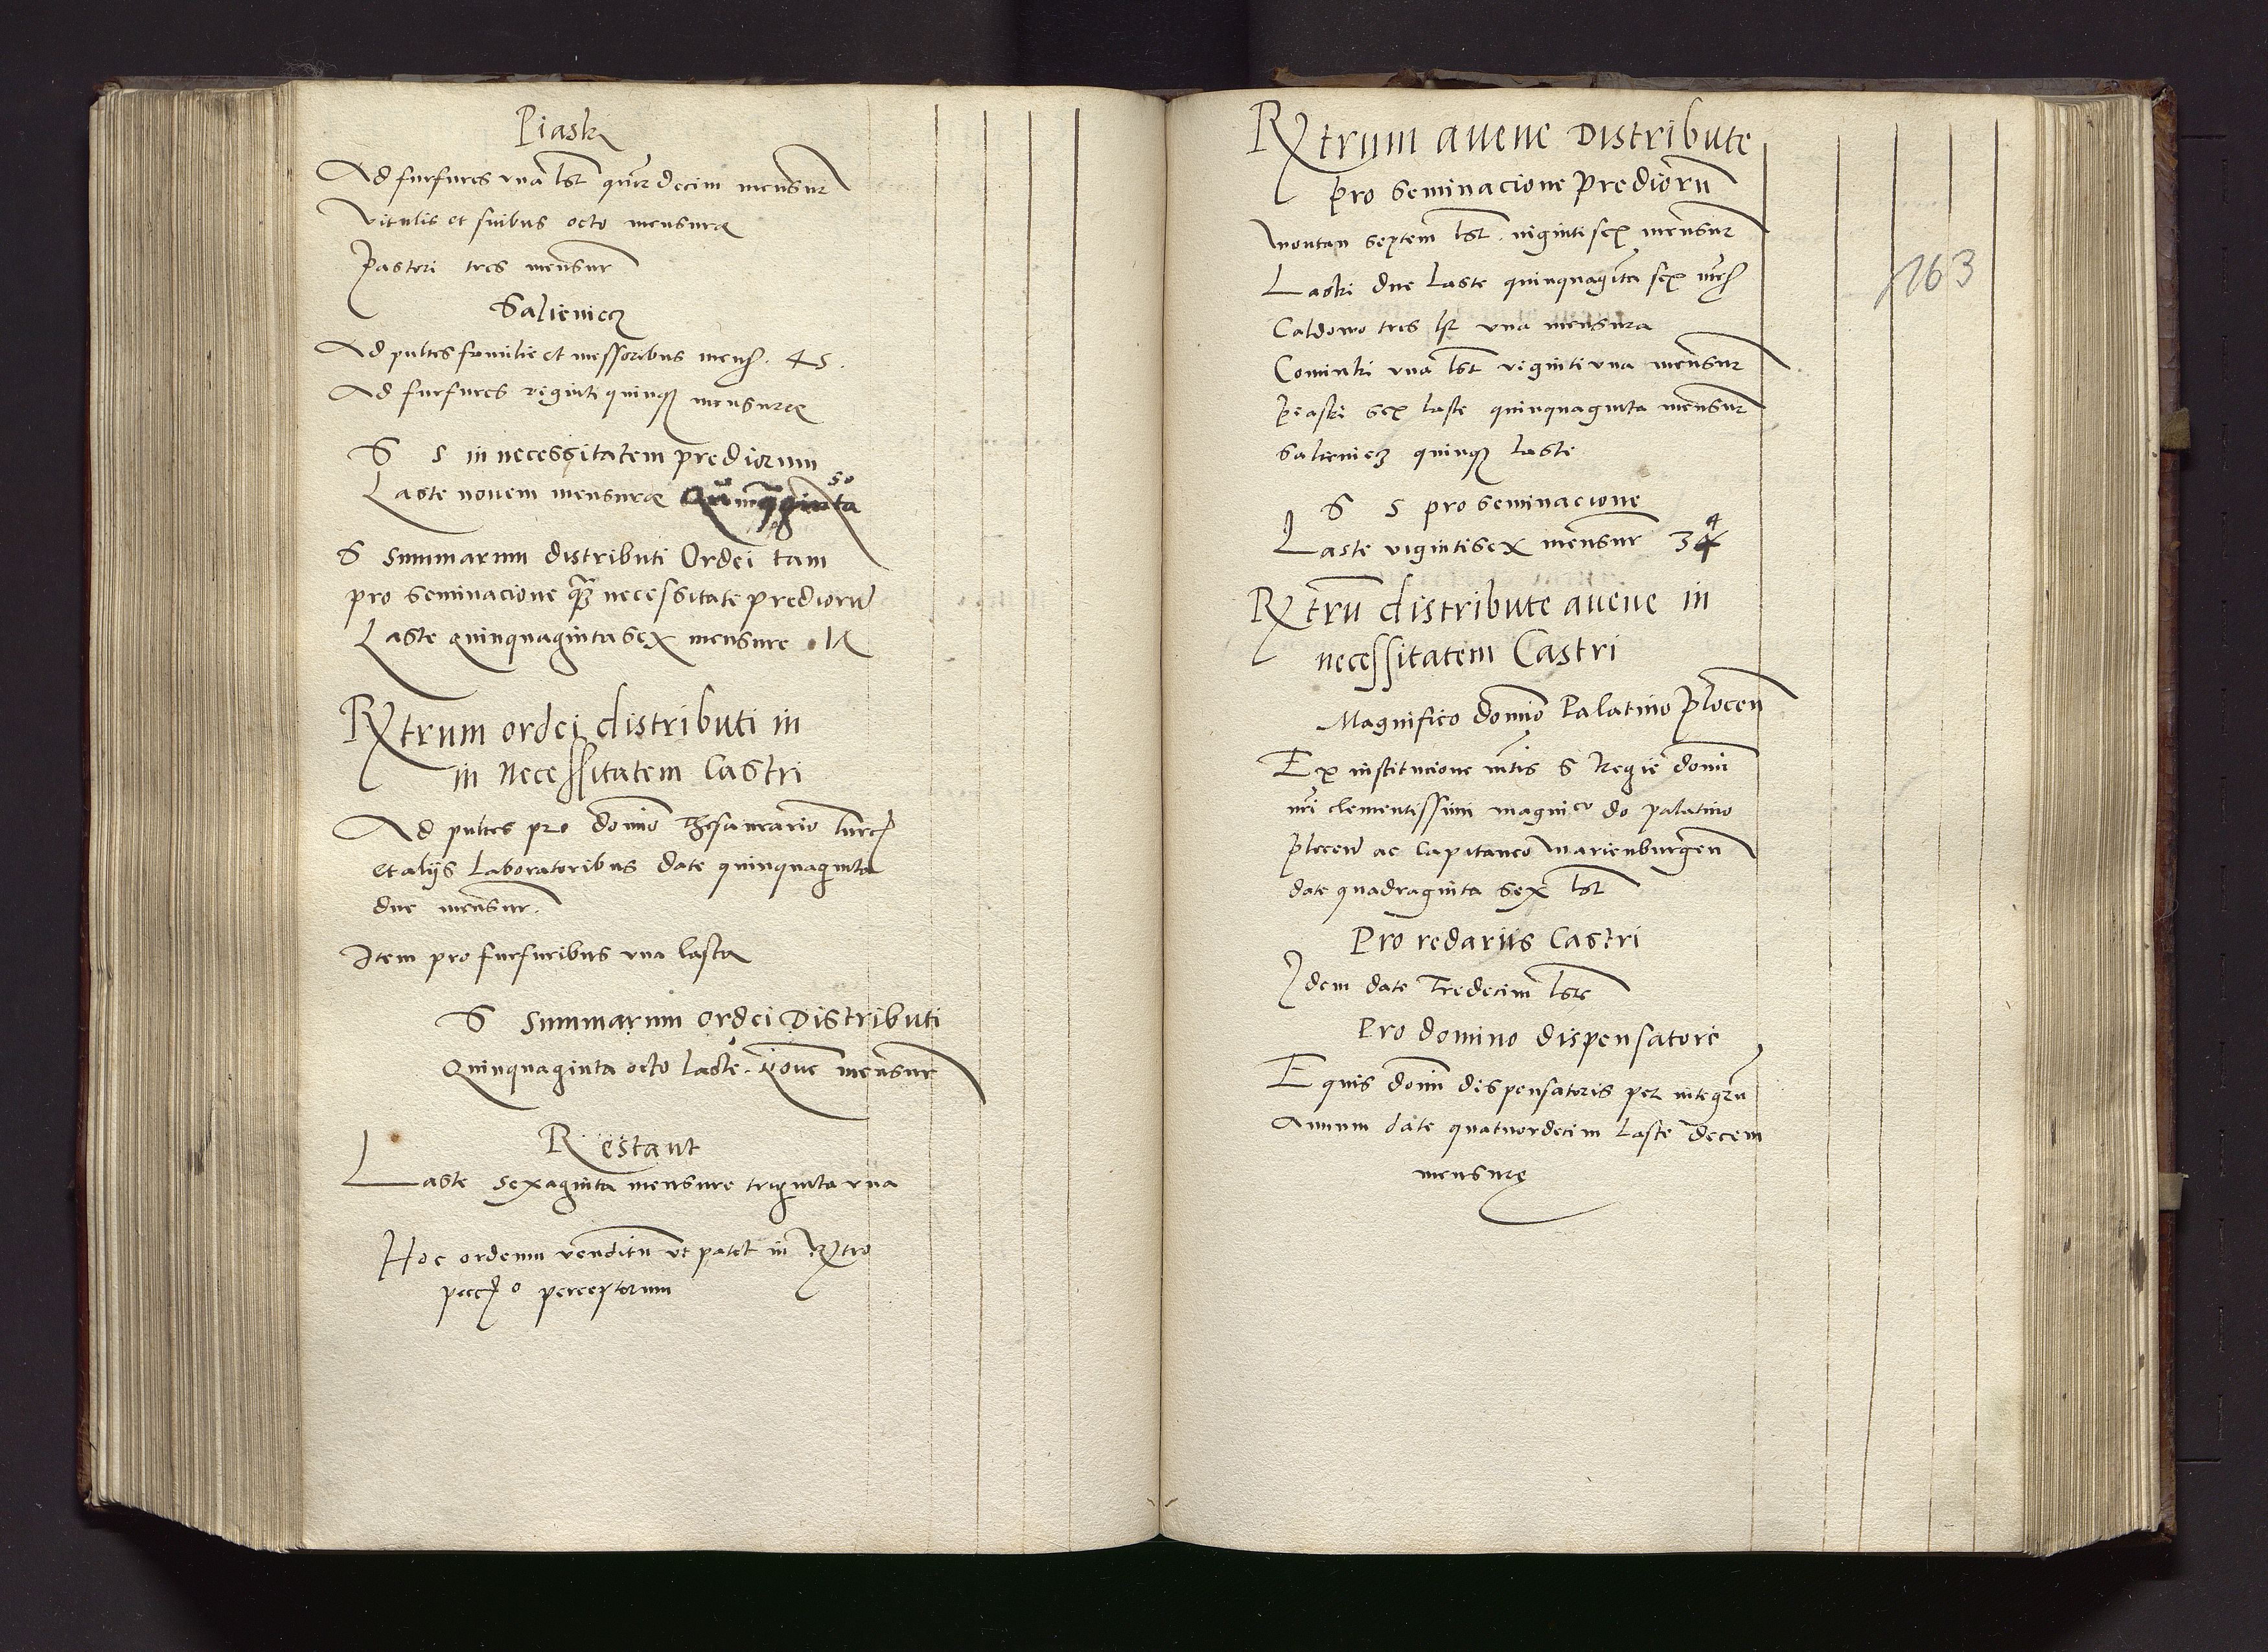 Piask
Ad furfures vna lst quīrdecim mensur
Vitulis et suibus octo mensuræ
Pastori tres mensur
Salieniecz
Ad pultes familie et messoribus mens. 45.
Ad furfures viginti quinq mensuræ
S S in necessitatem prediorum
Laste nouem mensuræ Quinqginta 50
S summarum distributi Ordei tam
pro seminacione q̃ȝ necessitate predioru
Laste quinquaginta sex mensure
Rxtrum ordei distributi in
in necessitatem Castri
Ad pultes pro domīo Thesaurario
et alijs Laboratoribus date quinquaginta
due mensur.
Item pro furfuribus vna lasta
S summarum ordei Distributi
Quinquaginta octo laste. Noue mensure
Restant
Laste sexaginta mensure triginta vna
Hoc ordeum venditu vt patet in Rxtro
perceptorum
Rxtrum auene Distribute
pro seminacione prediorū
Montan septem lst. viginti sex mensur
Laski due laste quinquaginta sex
Caldowo tres lst vna mensura
Cominki vna lst viginti vna mensur
Piaski sex laste quinquaginta mensur
Salieniecz quinq laste
S S pro seminacione
Laste viginti sex mensur 34
Rxtrū distribute auene in
necessitatem Castri
Magnifico domīo Palatino Plocen
Ex institucione mtis S Regie domī
nrī clementissimi magnico do palatino
plocen ac Capitaneo Marienburgen
date quadraginta sex lst
Pro redariis Castri
Idem date tredecim lste
Pro domino dispensatore
Equis domī dispensatoris per integrū
Annum date quatuordecim laste decem
mensurę
163